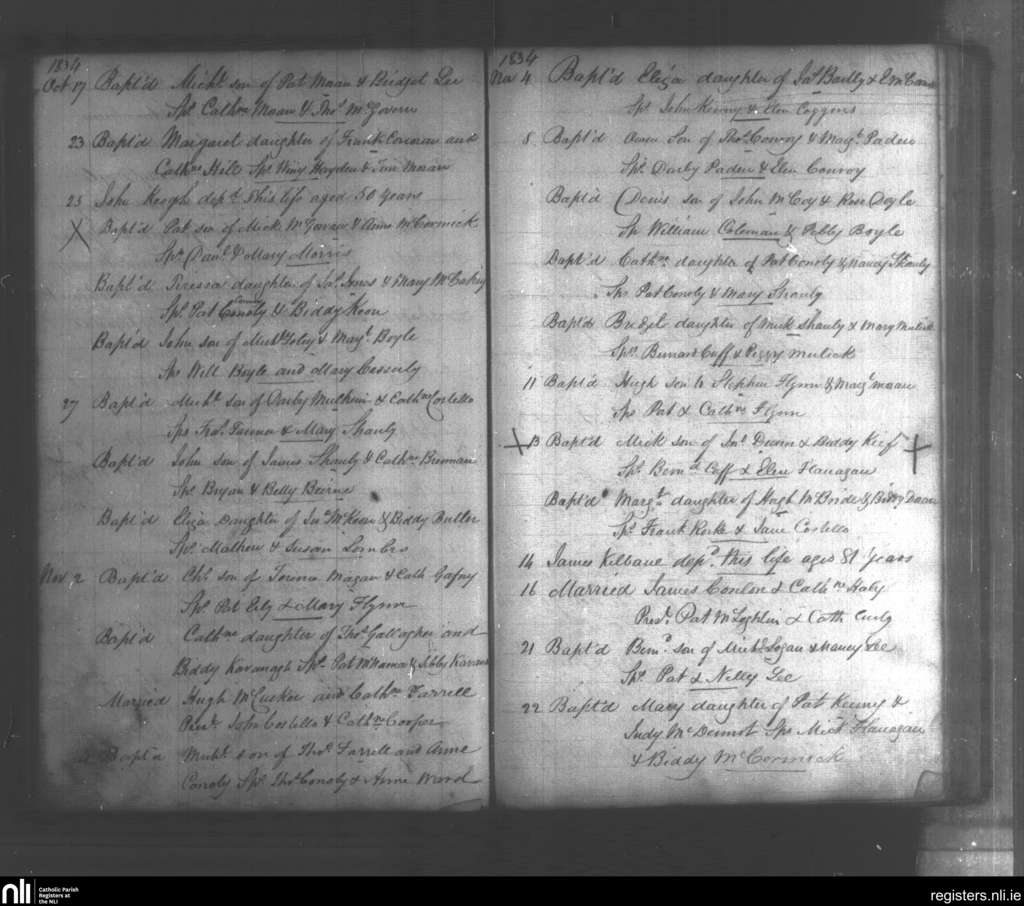 1834
Oct 17 Bapt'd Michl son of Pat Maan & Bridget Lee
Sps Cathne Maan & Thos McGovern
23 Bapt'd Margaret daughter of Frank Corcoran and
Cathne Hilt Sps Winy Hayden & Tim Maan
25 John Keogh depd this life aged 50 years
Bapt'd Pat son of Mick McGovern & Anne McCormick
Sps Danl & Mary Morris
Bapt'd Teressa daughter of Jas & Mary
Sps Pat Conoly & Biddy Keon
Bapt'd John son of Michl Foley & Margt Boyle
Sps Will Boyle and Mary Cesserly
27 Bapt'd Michl son of Darby & Cathne Costello
Sps Thos & Mary Shanly
Bapt'd John son of James Shanly & Cathne Brennan
Sps Bryan & Betty Beirne
Bapt'd Eliza Daughter of Jno McKeon & Biddy Butler
Sps Mathew & Susan
Nov 2 Bapt'd son of Terence Magan & Cath Gafney
Sps Pat & Mary Flynn
Bapt'd Cathne daughter of Thos Gallagher and
Biddy Kavanagh Sps Pat McNama & Sibby
Married Hugh McCusker and Cathne Farrell
Prest John Costello & Cathne Cooper
Bapt'd Michl son of Thos Farrell and Anne
Conoly Sps Thos Conoly & Anne Ward
1834
Nov 4 Bapt'd Eliza daughter of Jas &
Sps John Kenny & Elen Coggins
8 Bapt'd Owen Son of Thos Conroy & Margt Paden
Sps Darby Paden & Elen Conroy
Bapt'd Denis son of John McCoy & Rose Doyle
Sp William Coleman & Boyle
Bapt'd Cathne daughter of Pat Conoly & Nancy Shanly
Sps Pat Conoly & Mary Shanly
Bapt'd Bridget daughter of Mick Shanly & Mary Mulick
Sps Cuff & Peggy Mulick
11 Bapt'd Hugh son to Stephen Flynn & Margt Maan
Sps Pat & Cathne Flynn
13 Bapt'd Mick son of Jno & Biddy Kief
Sps Bernd Cuff & Elen Flanagan
Bapt'd Margt daughter of Hugh McBride & Biddy Maan
Sps Frank Rorke & Jane Costello
14 James Kilbane depd this life aged 81 Years
16 Married James Conlon & Cathne
Prest Pat McLoghlin & Cath
21 Bapt'd Bernd son of Michl Logan & Nancy Lee
Sps Pat & Nelly Lee
22 Bapt'd Mary daughter of Pat Kenny &
Judy McDermot Sps Mick Flanagan
& Biddy McCormick
nli Catholic Parish
Registers at
the NLI
registers.nli.ie